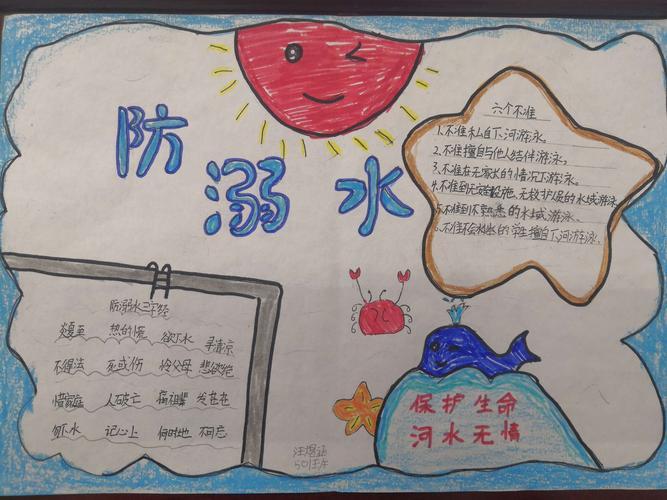 防
溺水
六个不准
1.不准私自下河游泳。
2.不准擅自与他人结伴游泳。
3.不准在无家长的情况下游泳。
4.不准到无安全设施、无救护员的水域游泳
5.不准到不熟悉的水域游泳
6.不准不会水的学生擅自下河游泳、
防溺水三字经
炎夏至 热的很 欲下水 寻清凉
不得法 死或伤 怜父母 悲欲绝
惜家庭 人破亡 痛祖辈
勿下水 记心上 何时地 不可忘
保护生命
河水无情